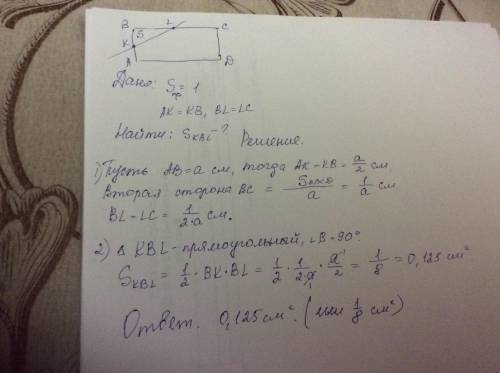 B L C
S
K
A D
Дано: Sпр = 1
AK = KB, BL = LC
Найти: S_KBL - ?
Решение.
1) Пусть AB = a см, тогда AK - KB = a/2 см
Вторая сторона BC = /a = 1/a см
BL - LC = 1/(2·a) см.
2) Δ KBL - прямоугольный, ∠B - 90°.
S_KBL = 1/2 · BK · BL = 1/2 · 1/(2·a) · a/2 = 1/8 = 0,125 см²
Ответ. 0,125 см². (или 1/8 см²)